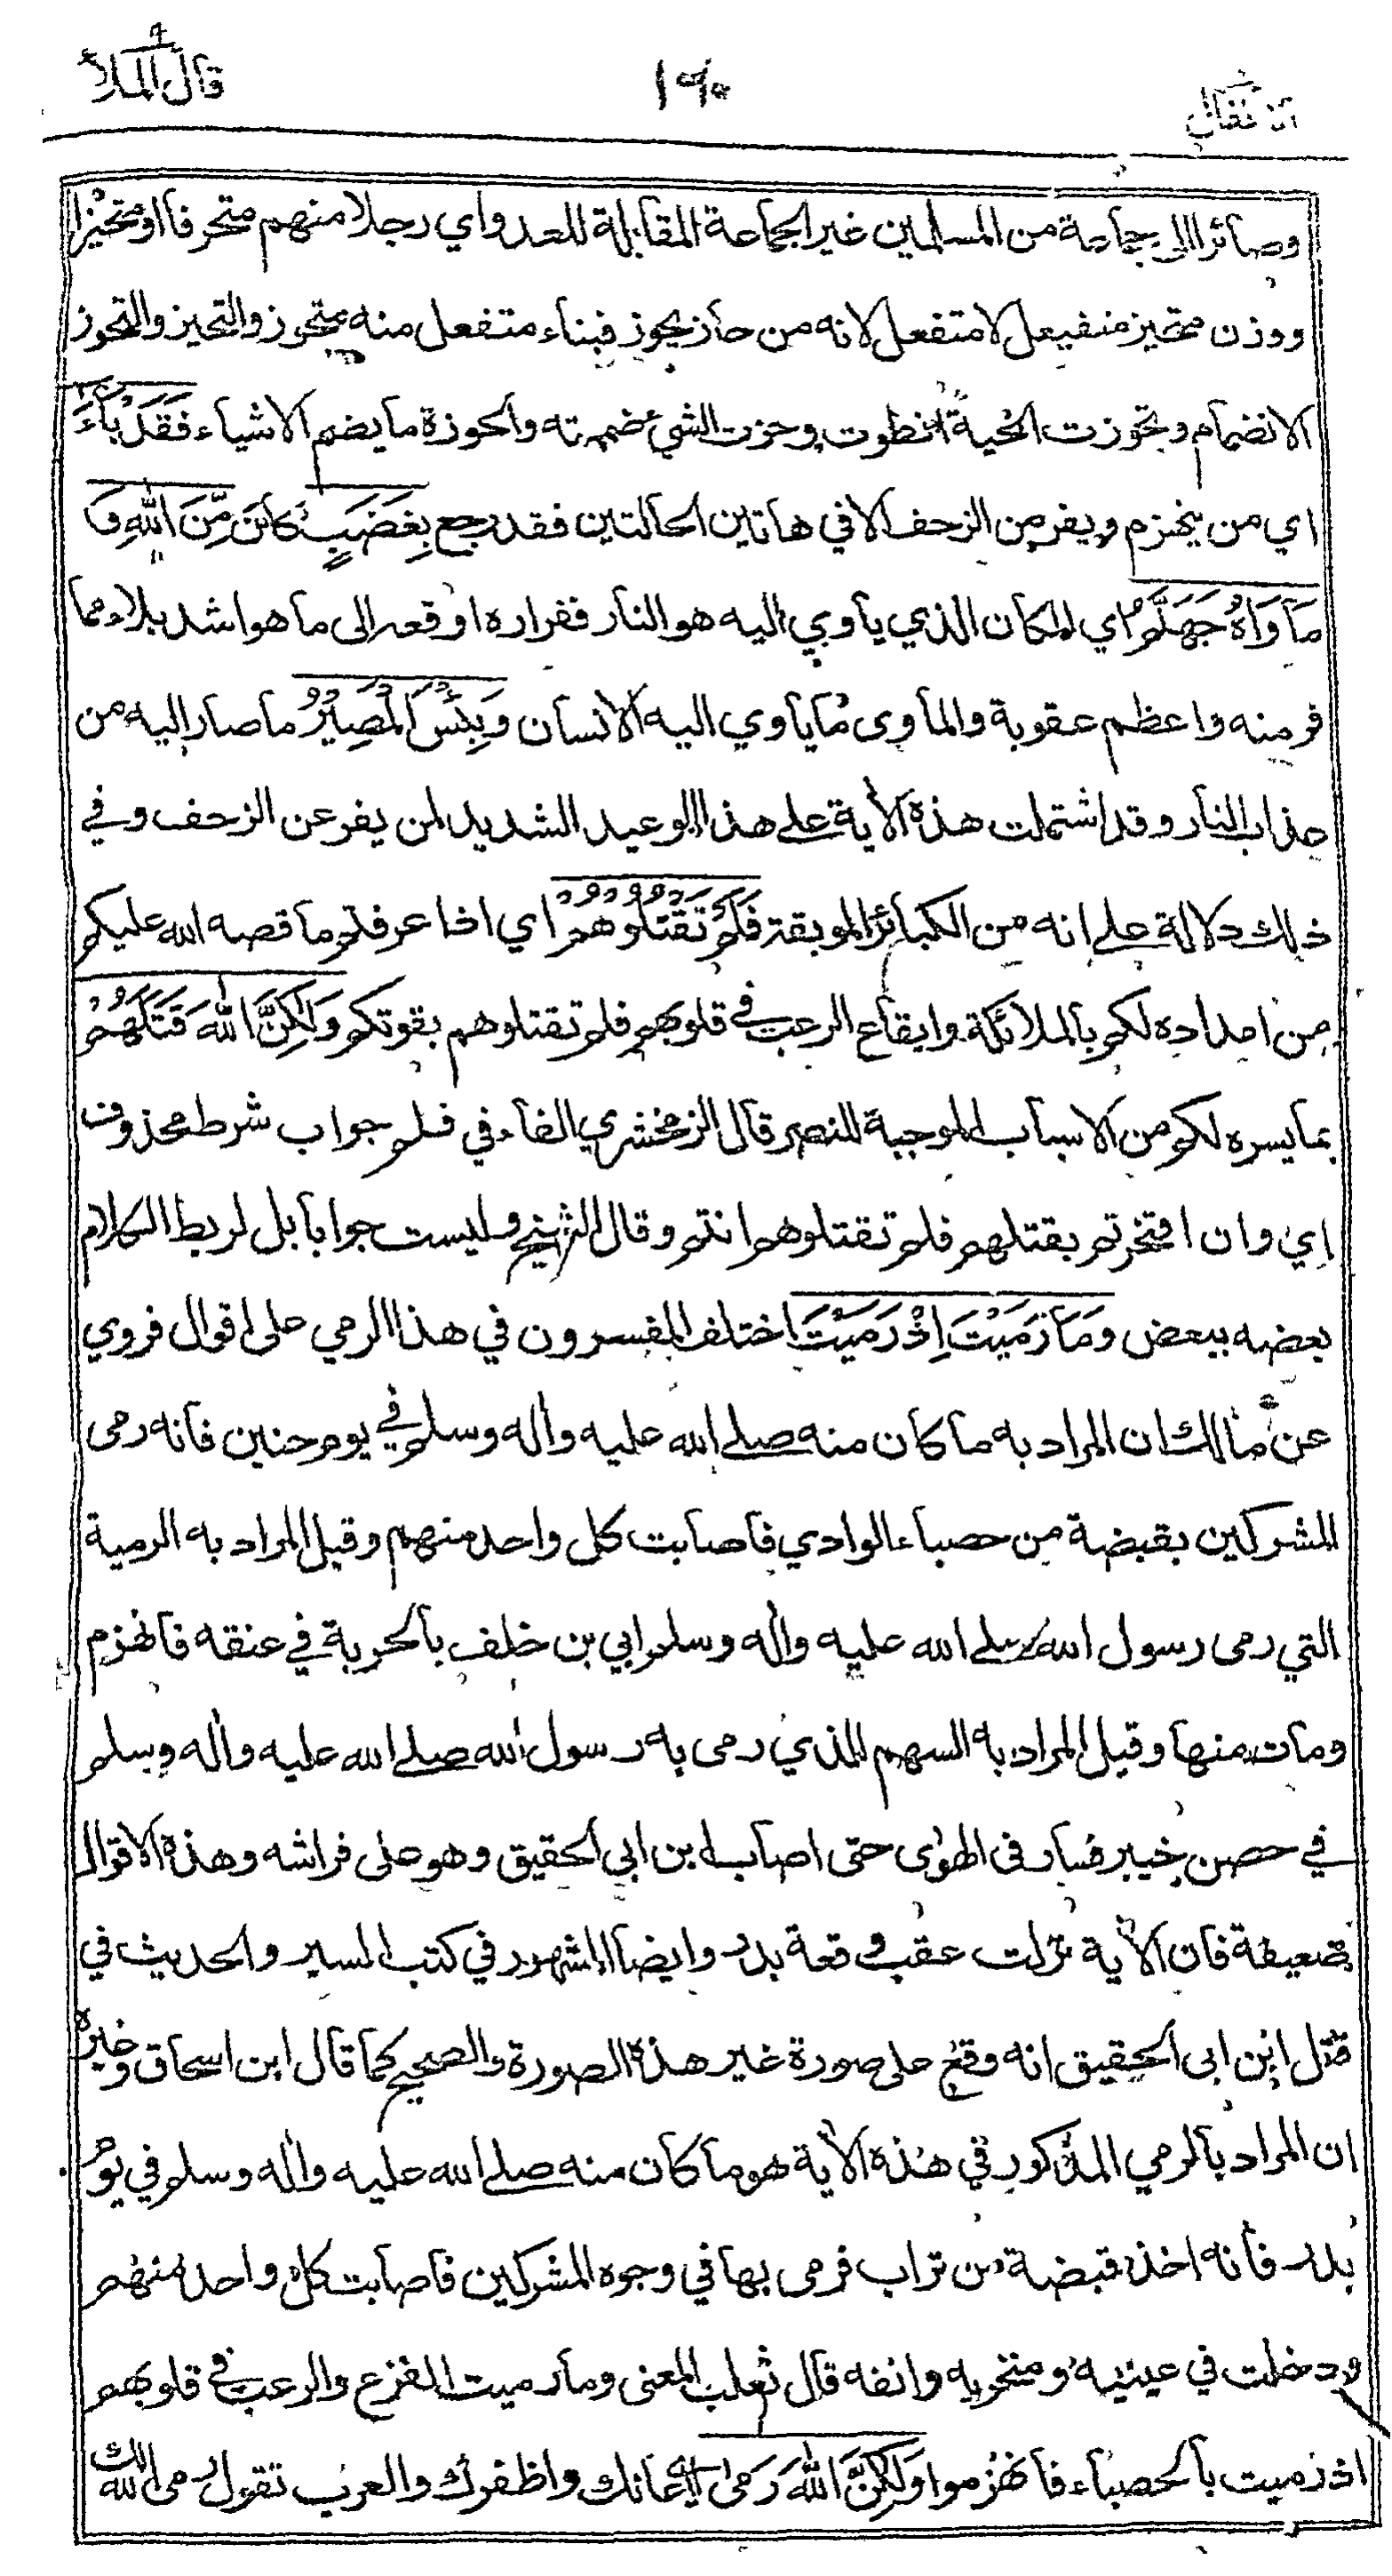 الانفال
١٩٠
قال الملأ ٩
وصائرا الى جماعة من المسلمين غير الجماعة المقابلة للعدو اي رجلا منهم متحرفا او متحيزا
ووزن متحيز متفيعل لا متفعل لانه من حاز يحوز فبناء متفعل منه متحوز والتحيز والتحوز
الانضمام وتحوزت الحية انطوت وحزت الشئ ضممته والحوزة ما يضم الاشياء فَقَدْ بَآءَ
اي من ينهزم ويفر من الزحف الا في هاتين الحالتين فقد رجع بِغَضَبٍ كائن مِّنَ اللّٰهِ وَ
مَاْوَاهُ جَهَنَّمُ اي المكان الذي يأوي اليه هو النار ففراره اوقعه الى ما هو اشد بلاء مما
فر منه واعظم عقوبة والمأوى ما يأوي اليه الانسان وَبِئْسَ الْمَصِيْرُ ما صار اليه من
عذاب النار وقد اشتملت هذه الأية على هذا الوعيد الشديد لمن يفر عن الزحف وفي
ذلك دلالة على انه من الكبائر الموبقة فَلَمْ تَقْتُلُوْهُمْ اي اذا عرفتم ما قصه الله عليكم
من امداده لكم بالملائكة وايقاع الرعب في قلوبهم فلم تقتلوهم بقوتكم وَلٰكِنَّ اللّٰهَ قَتَلَهُمْ
بما يسره لكم من الاسباب الموجبة للنصر قال الزمخشري الفاء في فلم جواب شرط محذوف
اي وان افتخرتم بقتلهم فلم تقتلوهم انتم وقال الشيخ وليست جوابا بل لربط الكلام
بعضه ببعض وَمَا رَمَيْتَ اِذْ رَمَيْتَ اختلف المفسرون في هذا الرمي على اقوال فروي
عن مالك ان المراد به ما كان منه صلى الله عليه وأله وسلم في يوم حنين فانه رمى
المشركين بقبضة من حصباء الوادي فاصابت كل واحد منهم وقيل المراد به الرمية
التي رمى رسول الله صلى الله عليه وأله وسلم ابي بن خلف بالحربة في عنقه فانهزم
ومات منها وقيل المراد به السهم الذي رمى به رسول الله صلى الله عليه وأله وسلم
في حصن خيبر فسار في الهوى حتى اصاب ابن ابي الحقيق وهو على فراشه وهذه الاقوال
ضعيفة فان الأية نزلت عقب وقعة بدر وايضا المشهور في كتب السير والحديث في
قتل ابن ابى الحقيق انه وقع على صورة غير هذه الصورة والصحيح كما قال ابن اسحاق وغيره
ان المراد بالرمي المذكور في هذه الأية هو ما كان منه صلى الله عليه وأله وسلم في يوم
بدر فانه اخذ قبضة من تراب فرمى بها في وجوه المشركين فاصابت كل واحد منهم
ودخلت في عينيه ومنخريه وانفه قال ثعلب المعنى وما رميت الفزع والرعب في قلوبهم
اذ رميت بالحصباء فانهزموا وَلٰكِنَّ اللّٰهَ رَمٰى اي اعانك واظفرك والعرب تقول رمى الله لك